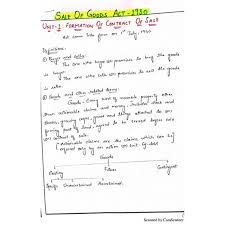 SALE OF GOODS ACT - 1930
UNIT-1: FORMATION OF CONTRACT OF SALE
Act came into force on 1st July, 1930
Definitions:
① Buyer and seller:
The one who buys or promises to buy the goods
is buyer.
The one who sells or promises to sell the goods
② Goods and other related terms:
Goods - Every kind of movable property other
than actionable claims and money. Includes stock and
shares, growing crops, grass and things attached to or
forming part of land, agreed to be severed before sale
Actionable claims are the claims which can be
enforced only by an action or suit
Goods
Existing Future Contingent
Specific Unascertained
Scanned by CamScanner